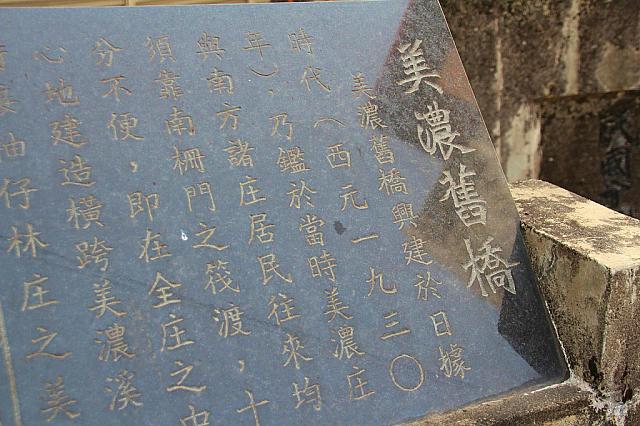 美濃舊橋
美濃舊橋興建於日據
時代(西元一九三〇
年),乃鑑於當時美濃庄
與南方諸庄居民往來均
須靠南柵門之筏渡,十
分不便,即在全庄之中
心地建造橫跨美濃溪
油仔林庄之美